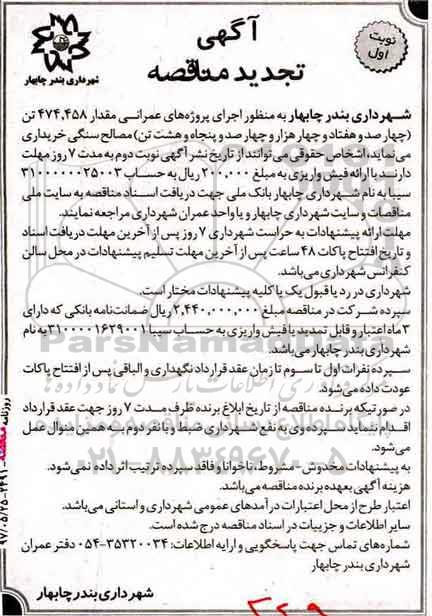 آگهی
تجدید مناقصه
نوبت
اول
شهرداری بندر چابهار
شهرداری بندر چابهار به منظور اجرای پروژه‌های عمرانی مقدار ۴۷۴,۴۵۸ تن
(چهارصد و هفتاد و چهار هزار و چهارصد و پنجاه و هشت تن) مصالح سنگی خریداری
می‌نماید، اشخاص حقوقی می‌توانند از تاریخ نشر آگهی نوبت دوم به مدت ۷ روز مهلت
دارند با ارائه فیش واریزی به مبلغ ۲۰۰,۰۰۰ ریال به حساب ۳۱۰۰۰۰۰۰۲۵۰۰۳
سیبا به نام شهرداری چابهار بانک ملی جهت دریافت اسناد مناقصه به سایت ملی
مناقصات و سایت شهرداری چابهار و یا واحد عمران شهرداری مراجعه نمایند.
مهلت ارائه پیشنهادات به حراست شهرداری ۷ روز پس از آخرین مهلت دریافت اسناد
و تاریخ افتتاح پاکات ۴۸ ساعت پس از آخرین مهلت تسلیم پیشنهادات در محل سالن
کنفرانس شهرداری می‌باشد.
شهرداری در رد یا قبول یک یا کلیه پیشنهادات مختار است.
سپرده شرکت در مناقصه مبلغ ۲,۴۴۰,۰۰۰,۰۰۰ ریال ضمانت‌نامه بانکی که دارای
۳ ماه اعتبار و قابل تمدید یا فیش واریزی به حساب سیبا ۳۱۰۰۰۰۱۶۲۹۰۰۱ به نام
شهرداری بندر چابهار می‌باشد.
سپرده نفرات اول تا سوم تا زمان عقد قرارداد نگهداری و الباقی پس از افتتاح پاکات
عودت داده می‌شود.
در صورتیکه برنده مناقصه از تاریخ ابلاغ برنده ظرف مدت ۷ روز جهت عقد قرارداد
اقدام ننماید سپرده وی به نفع شهرداری ضبط و با نفر دوم به همین منوال عمل
می‌شود.
به پیشنهادات مخدوش - مشروط، ناخوانا و فاقد سپرده ترتیب اثر داده نمی‌شود.
هزینه آگهی بعهده برنده مناقصه می‌باشد.
اعتبار طرح از محل اعتبارات درآمدهای عمومی شهرداری و استانی می‌باشد.
سایر اطلاعات و جزییات در اسناد مناقصه درج شده است.
شماره‌های تماس جهت پاسخگویی و ارایه اطلاعات: ۳۵۳۲۰۰۳۴-۰۵۴ دفتر عمران
شهرداری بندر چابهار
شهرداری بندر چابهار
روزنامه مناقصه - ۳۴۹۱ - ۹۷/۰۵/۲۵
ParsNamadData
۰۲۱-۸۸۳۴۹۶۷۰-۵